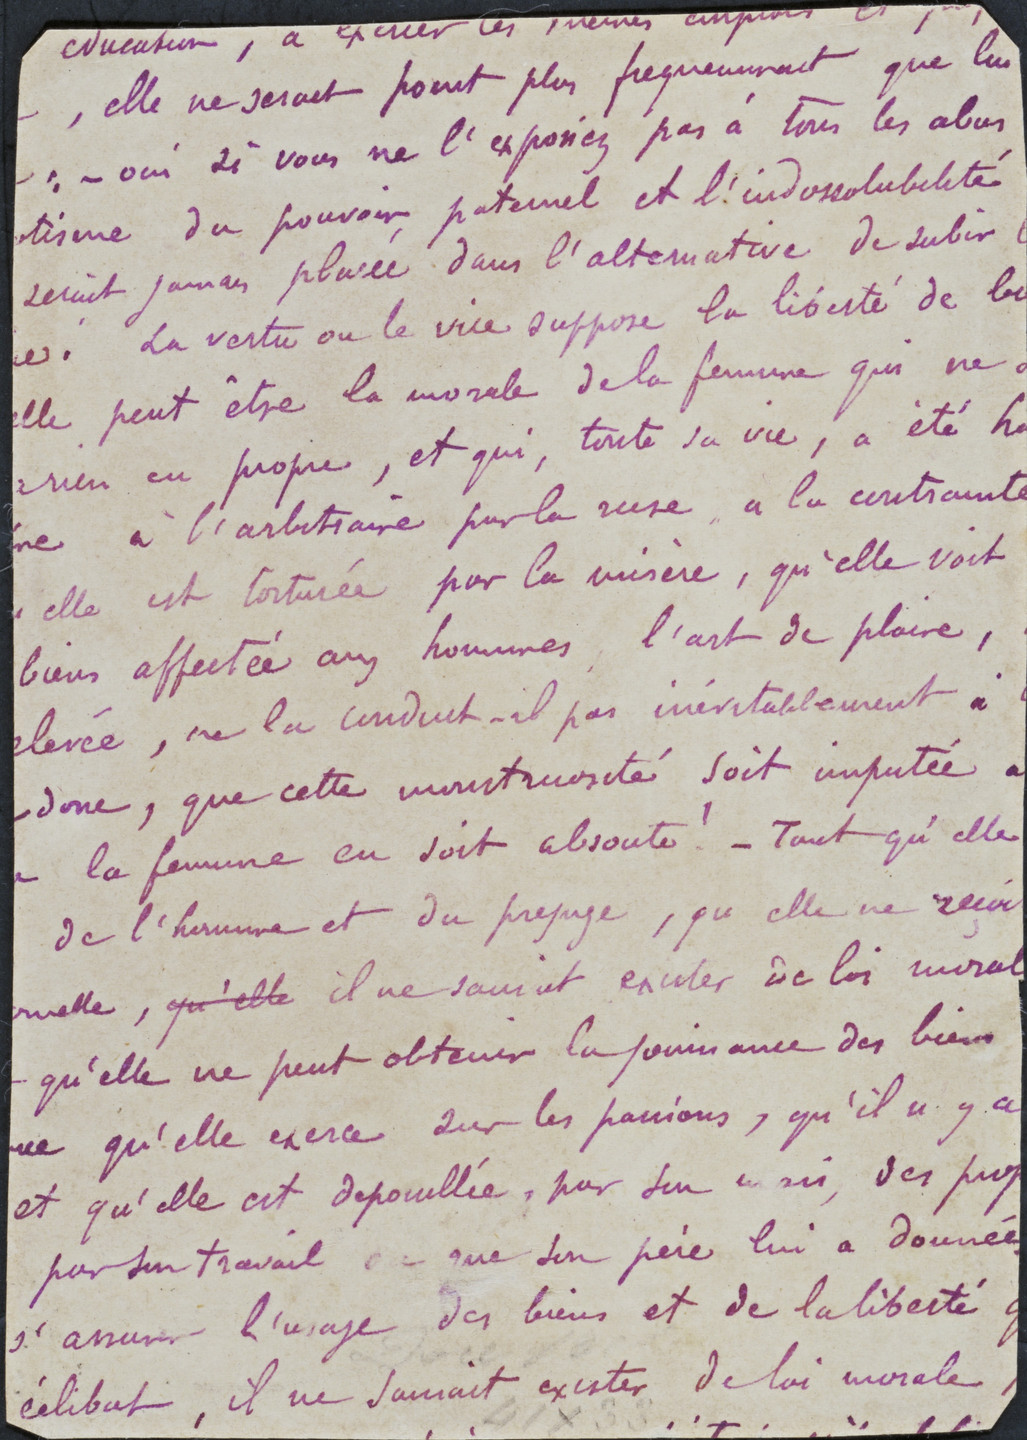 education, a exercer les mêmes emplois et
, elle ne serait point plus frequemment que lui
; - oui si vous ne l'exposiez pas à tous les abus
otisme du pouvoir paternel et l'indossolubilité
serait jamais placée dans l'alternative de subir
. La vertu ou le vice suppose la liberté de
elle peut être la morale de la femme qui ne
rien en propre, et qui, toute sa vie, a été
à l'arbitraire par la ruse, a la contrainte
elle est torturée par la misère, qu'elle voit
biens affectée aux hommes, l'art de plaire,
elevée, ne la conduit-il pas inévitablement à
donc, que cette monstruosité soit imputée a
la femme en soit absoute! - Tant qu'elle
de l'homme et du prejuge, qu elle ne
, qu'elle il ne saurait exister de loi moral
qu'elle ne peut obtenir la jouissance des biens
qu'elle exerce sur les passions, qu'il n y a
et qu'elle est depouillée, par son mari, des prop
par son travail que son père lui a données
s'assurer l'usage des biens et de la liberté
célibat, il ne saurait exister de loi morale,